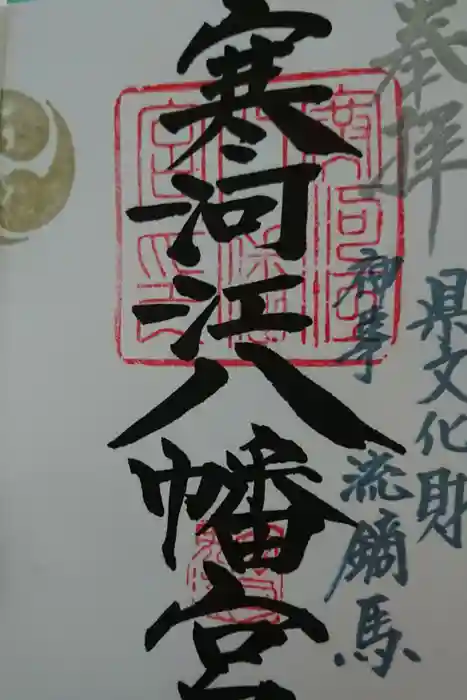 奉拝
県文化財
神事
流鏑馬
寒河江八幡宮